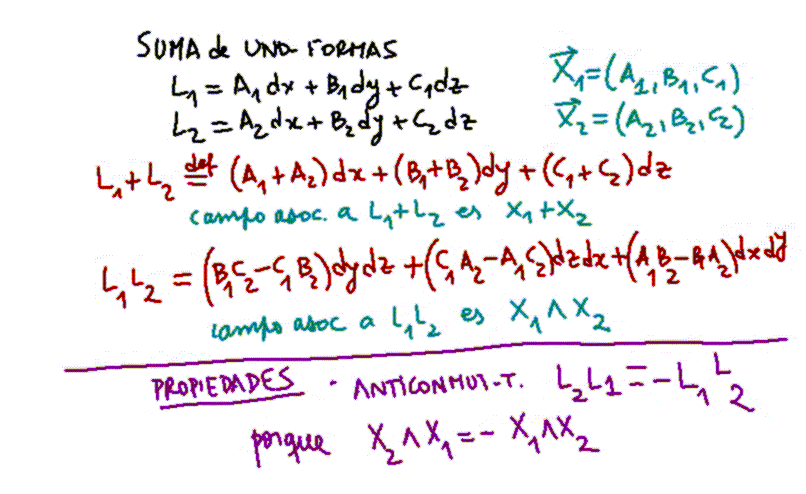 SUMA de UNO-FORMAS
L₁ = A₁dx + B₁dy + C₁dz
X⃗₁ = (A₁, B₁, C₁)
L₂ = A₂dx + B₂dy + C₂dz
X⃗₂ = (A₂, B₂, C₂)
L₁+L₂ ≝ (A₁+A₂)dx + (B₁+B₂)dy + (C₁+C₂)dz
campo asoc. a L₁+L₂ es X₁+X₂
L₁L₂ = (B₁C₂-C₁B₂)dydz + (C₁A₂-A₁C₂)dzdx + (A₁B₂-B₁A₂)dxdy
campo asoc a L₁L₂ es X₁∧X₂
PROPIEDADES · ANTICONMUT-T. L₂L₁ = -L₁L₂
porque X₂∧X₁ = - X₁∧X₂